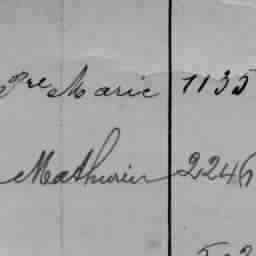 Pre Marie 1135
Mathurin 2246